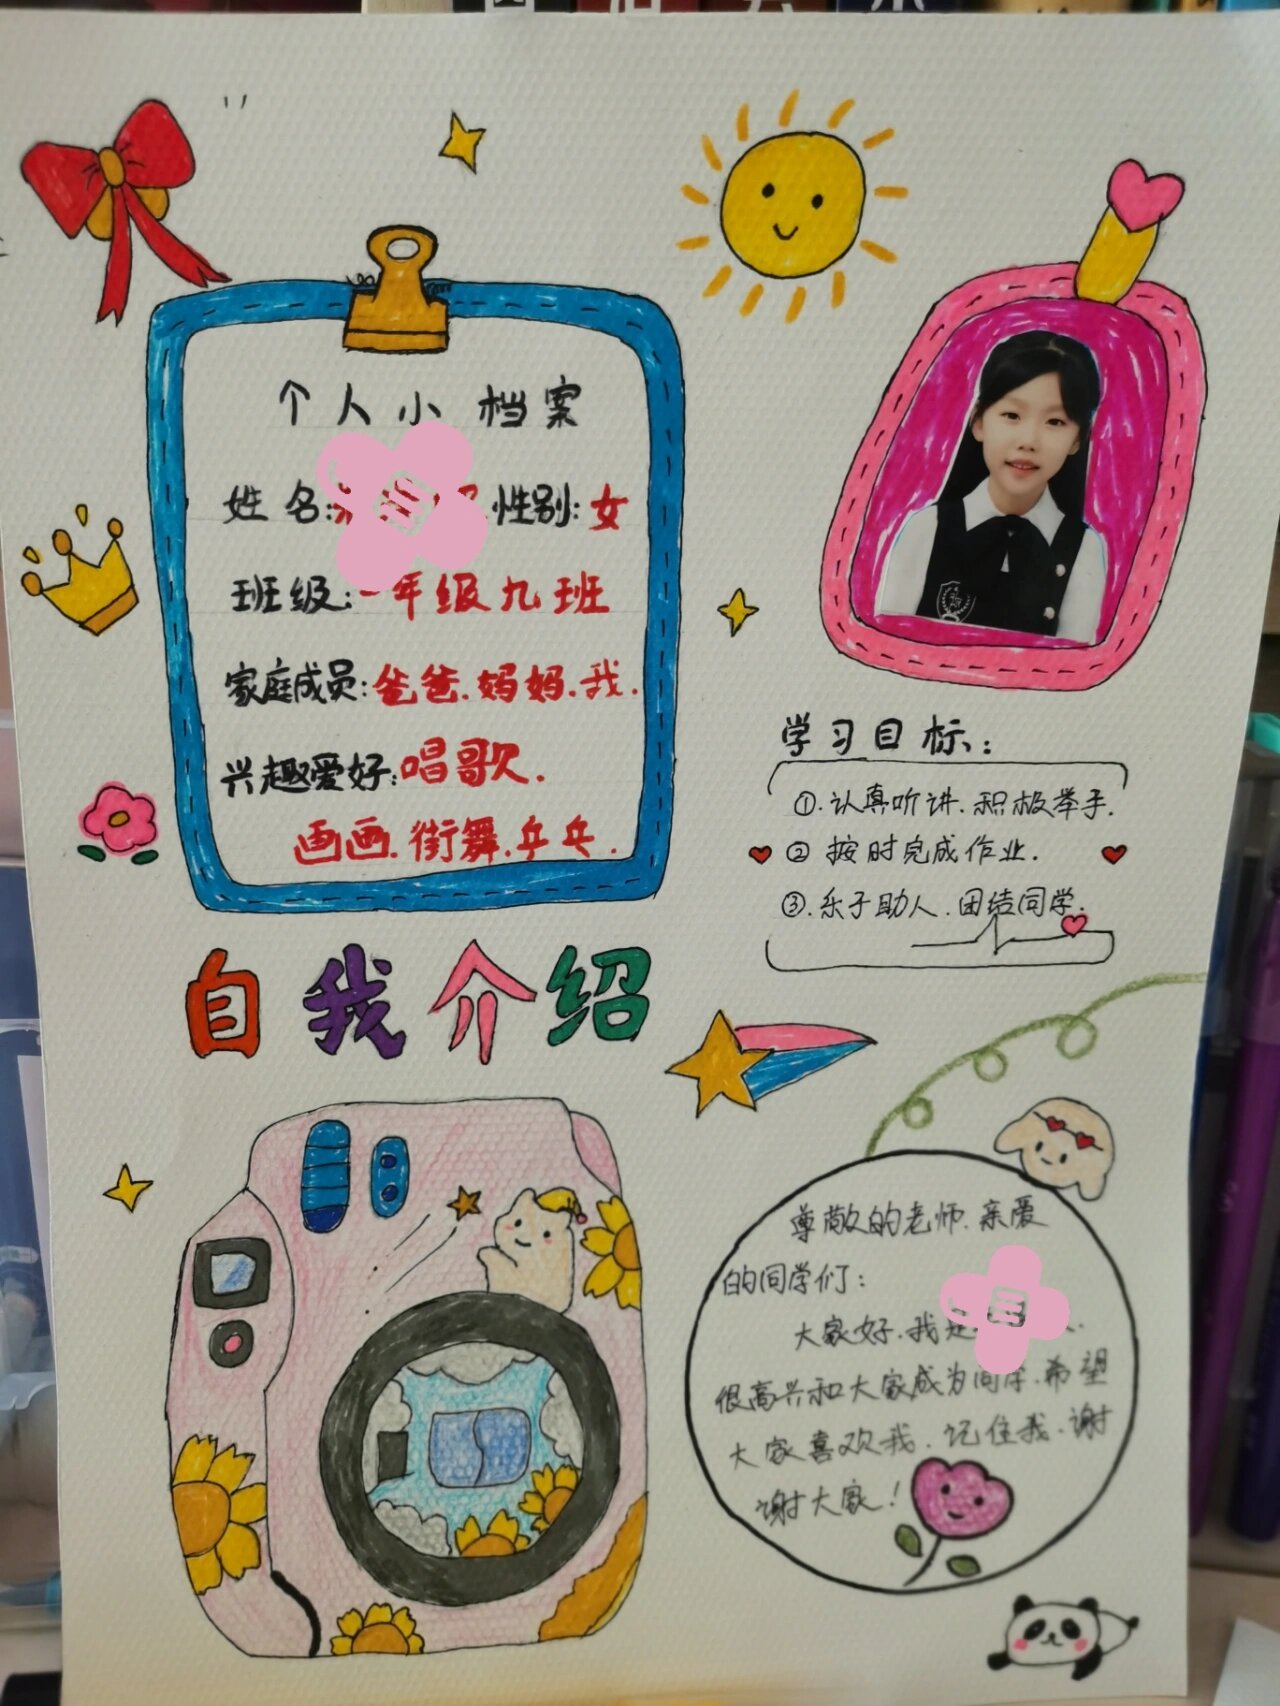 个人小档案
姓名: 性别:女
班级:一年级九班
家庭成员:爸爸.妈妈.我.
兴趣爱好:唱歌.
画画.街舞.乒乓.
学习目标:
①.认真听讲.积极举手.
②按时完成作业.
③.乐于助人.团结同学.
自我介绍
尊敬的老师.亲爱
的同学们:
大家好.我是
很高兴和大家成为同学.希望
大家喜欢我.记住我.谢
谢大家!